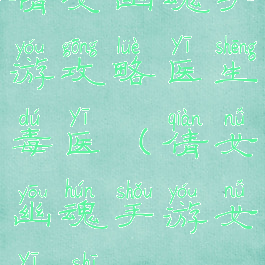 yóu gōng lüè yī shēng
游攻略医生
dú yī qiàn nǚ
毒医（倩女
yōu hún shǒu yóu nǚ
幽魂手游女
yī